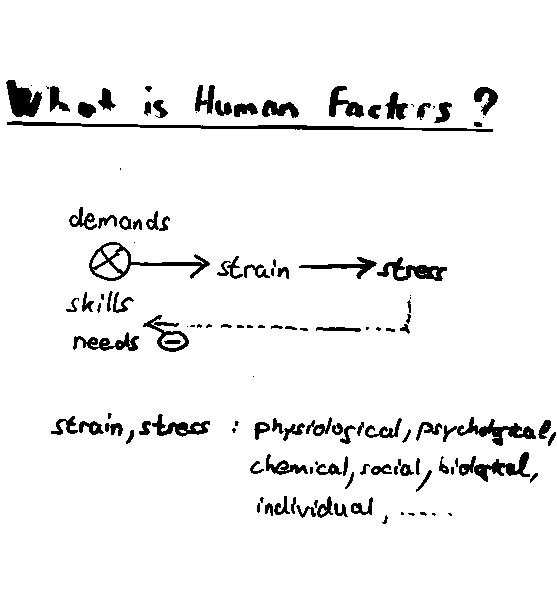 What is Human Factors?
demands
strain
stress
skills
needs
strain, stress : physiological, psychological,
chemical, social, biological,
individual, .....